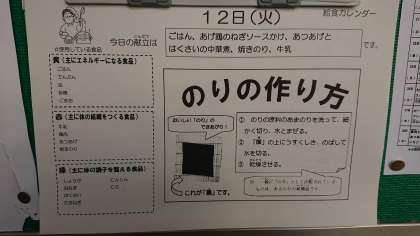 給食カレンダー
12日(火)
今日の献立は
ごはん、あげ鶏のねぎソースかけ、あつあげと
はくさいの中華煮、焼きのり、牛乳
です。
☆使用している食品
黄(主にエネルギーになる食品)
ごはん
でんぷん
油
砂糖
ごま油
赤(主に体の組織をつくる食品)
牛乳
鶏肉
あつあげ
焼きのり
緑(主に体の調子を整える食品)
しょうが にんじん
はくさい
のりの作り方
おいしい「のり」の
できあがり!
これが「簾」です。
① のりの原料のあまのりを洗って、細
かく切り、水とまぜる。
② 「簾」の上にうすくしき、のばして
水を切る。
③ 乾燥させる。